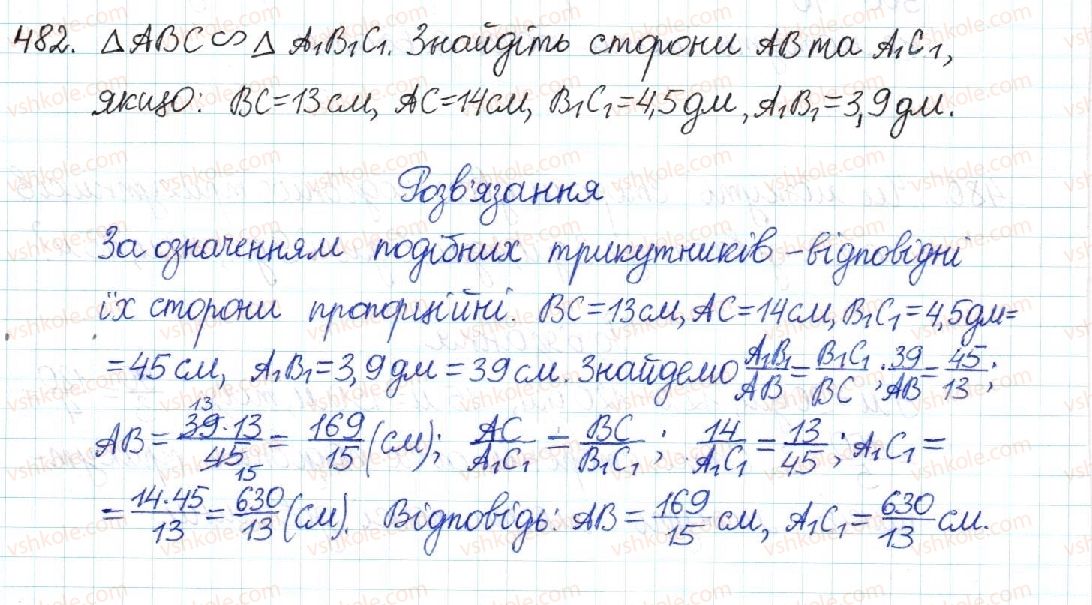 482. △ABC∽△ A₁B₁C₁. Знайдіть сторони AB та A₁C₁,
якщо: BC=13см, AC=14см, B₁C₁=4,5дм, A₁B₁=3,9дм.
Розв'язання
За означенням подібних трикутників – відповідні
їх сторони пропорційні. BC=13см, AC=14см, B₁C₁=4,5дм=
=45см, A₁B₁=3,9дм=39см. Знайдемо A₁B₁/AB=B₁C₁/BC; 39/AB=45/13;
AB= 39·13/45 (13, 15) = 169/15 (см); AC/A₁C₁ = BC/B₁C₁; 14/A₁C₁ = 13/45; A₁C₁=
= 14·45/13 = 630/13 (см). Відповідь: AB= 169/15 см, A₁C₁= 630/13 см.